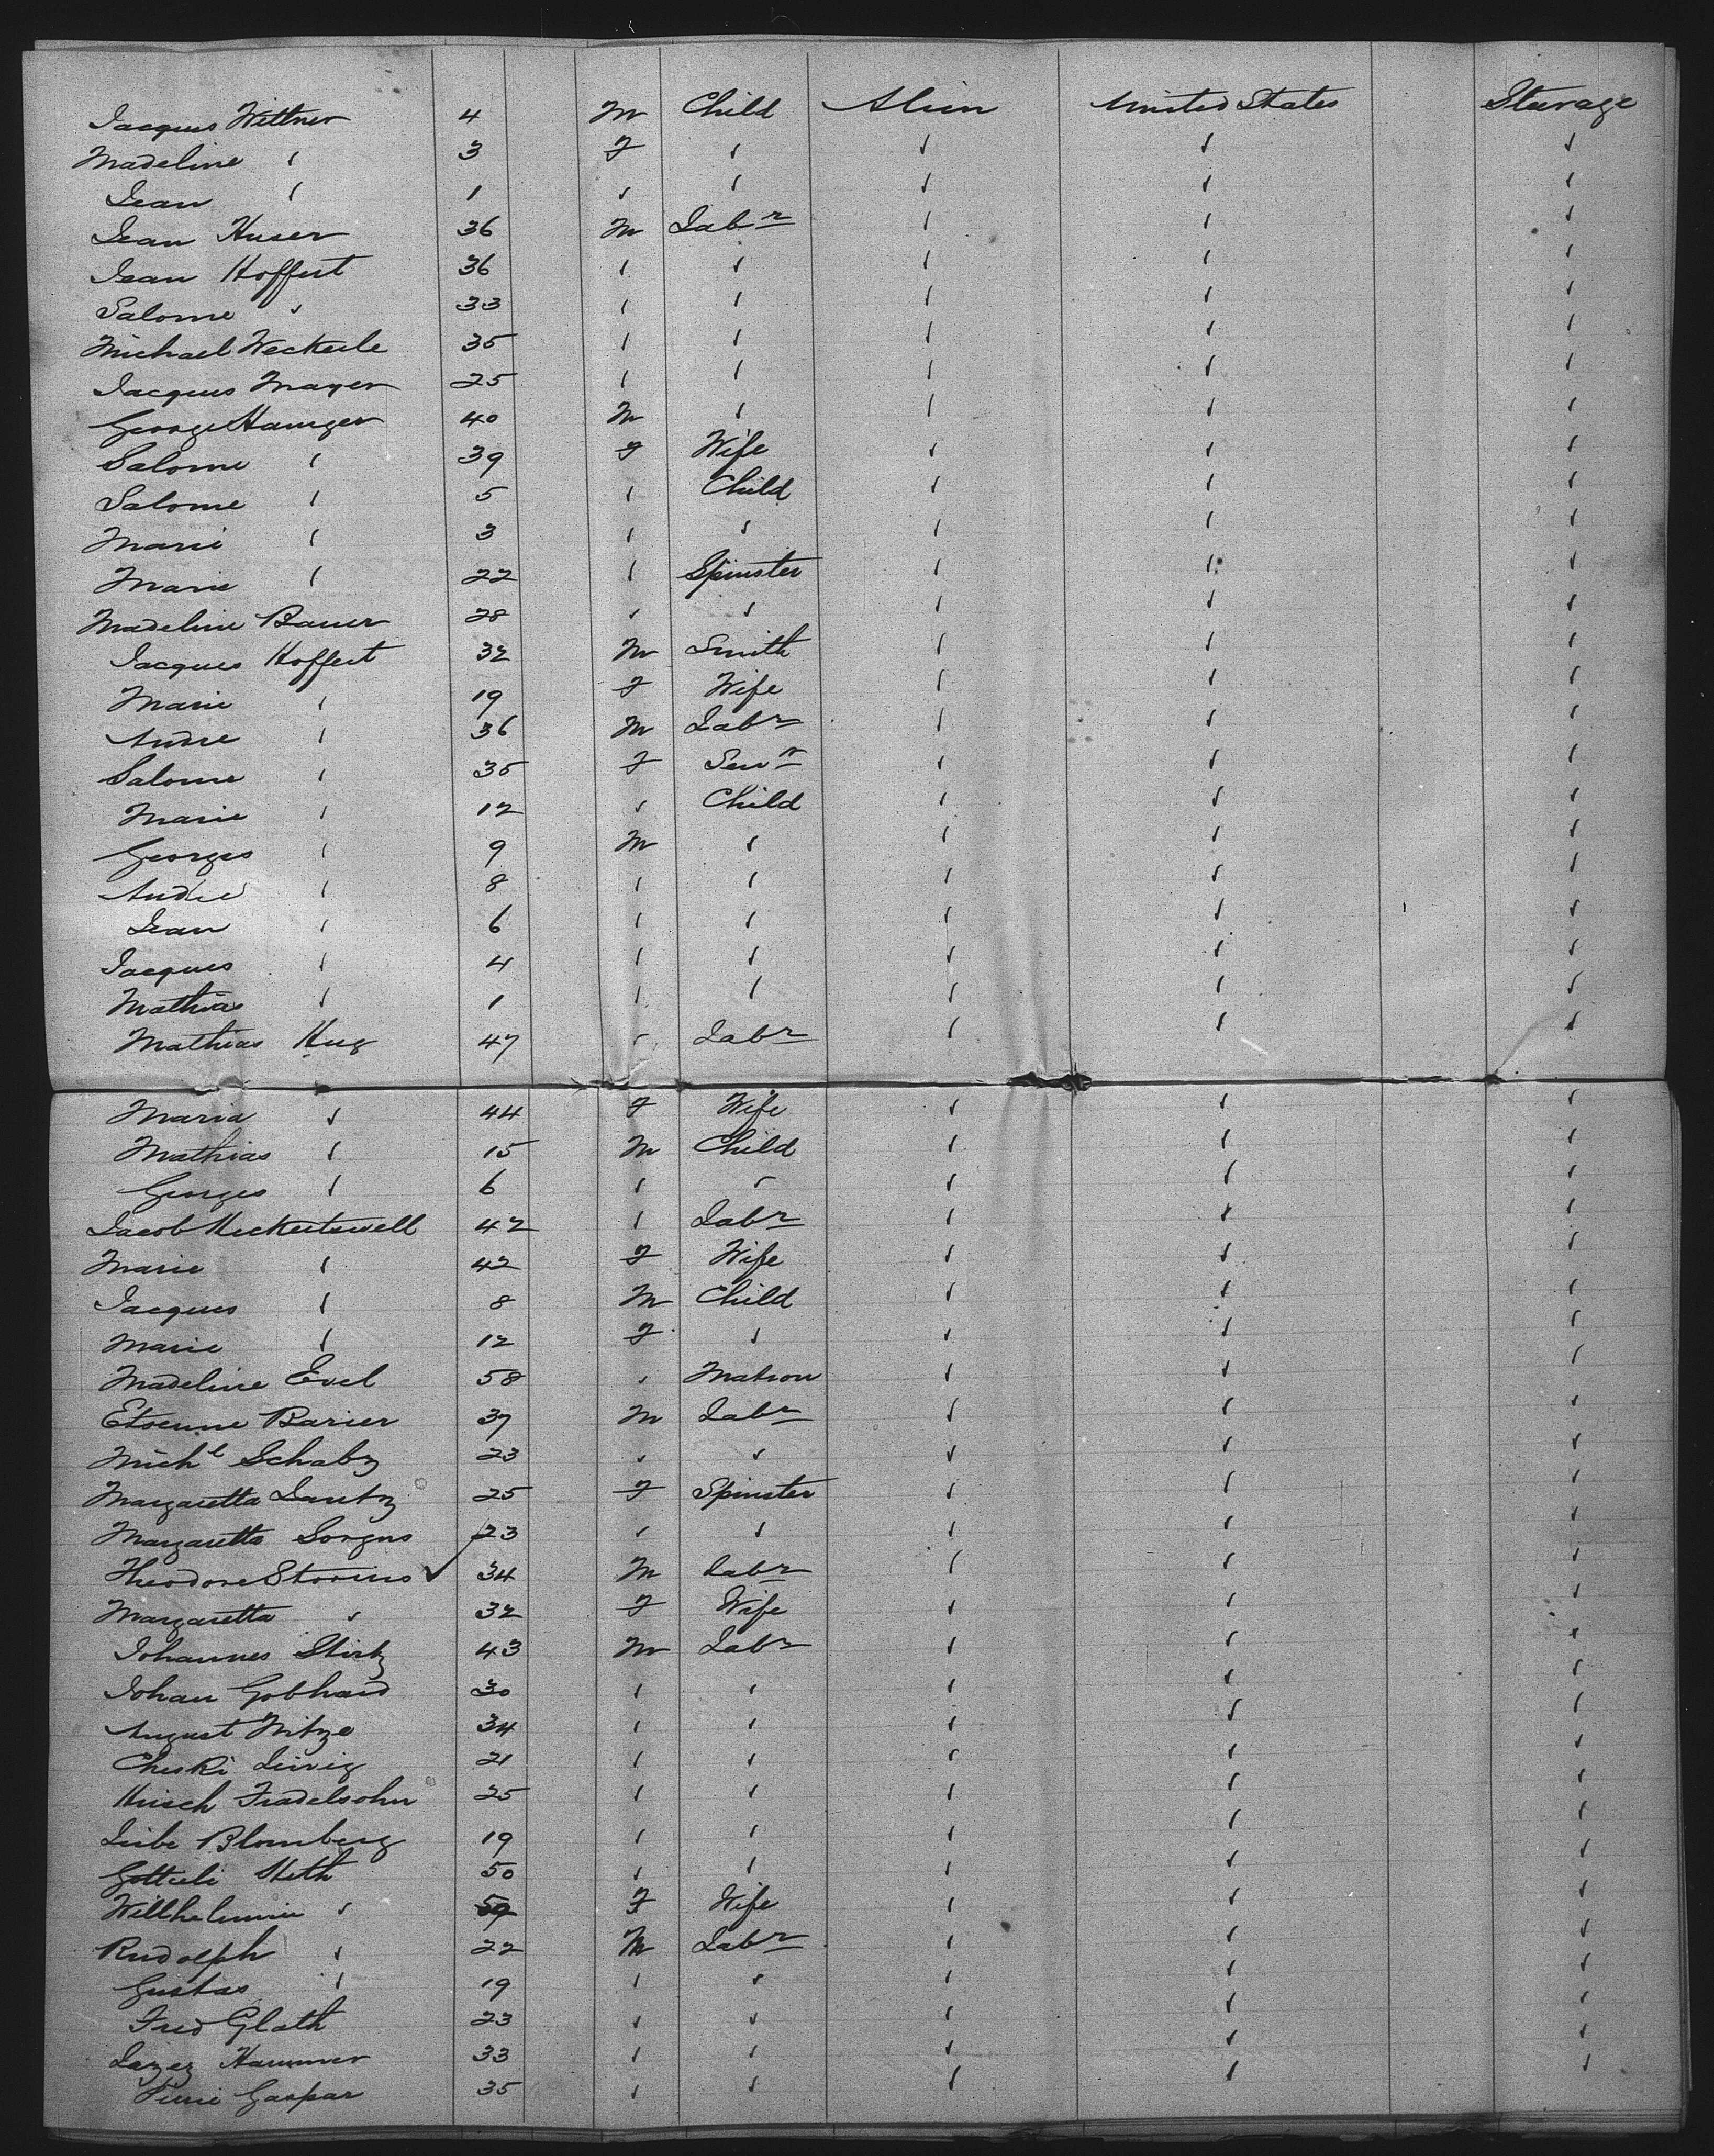 Jacques Wittner 4 M Child Alien United States Steerage
Madeline " 3 F " " " "
Jean " 1 " " " " "
Jean Huser 36 M Labr " " "
Jean Hoffert 36 " " " " "
Salome " 33 " " " " "
Michael Weckerle 35 " " " " "
Jacques Mayer 25 " " " " "
George Hamger 40 M " " " "
Salome " 39 F Wife " " "
Salome " 5 " Child " " "
Marie " 3 " " " " "
Marie " 22 " Spinster " " "
Madeline Bauer 28 " " " " "
Jacques Hoffert 32 M Smith " " "
Marie " 19 F Wife " " "
Andre " 36 M Labr " " "
Salome " 35 F Servt " " "
Marie " 12 " Child " " "
Georges " 9 M " " " "
Andre " 8 " " " " "
Jean " 6 " " " " "
Jacques " 4 " " " " "
Mathias " 1 " " " " "
Mathias Hug 47 " Labr " " "
Maria " 44 F Wife " " "
Mathias " 15 M Child " " "
Georges " 6 " " " " "
Jacob Heckertswell 42 " Labr " " "
Marie " 42 F Wife " " "
Jacques " 8 M Child " " "
Marie " 12 F " " " "
Madeline Evel 58 " Matron " " "
Etienne Barier 37 M Labr " " "
Michl Schabz 23 " " " " "
Margaretta Lantz 25 F Spinster " " "
Margaretta Sorgus 23 " " " " "
Theodore Storius ✓ 34 M Labr " " "
Margaretta " 32 F Wife " " "
Johannes Stirtz 43 M Labr " " "
Johan Gobhard 30 " " " " "
August Nitze 34 " " " " "
Cheski Leivig 21 " " " " "
Hirsch Fradelsohn 25 " " " " "
Leibe Blomberg 19 " " " " "
Gottlieb Heth 50 " " " " "
Willhelmine " 59 F Wife " " "
Rudolph " 22 M Labr " " "
Gustas " 19 " " " " "
Fred Glath 23 " " " " "
Lazez Hammer 33 " " " " "
Pierre Gaspar 35 " " " " "